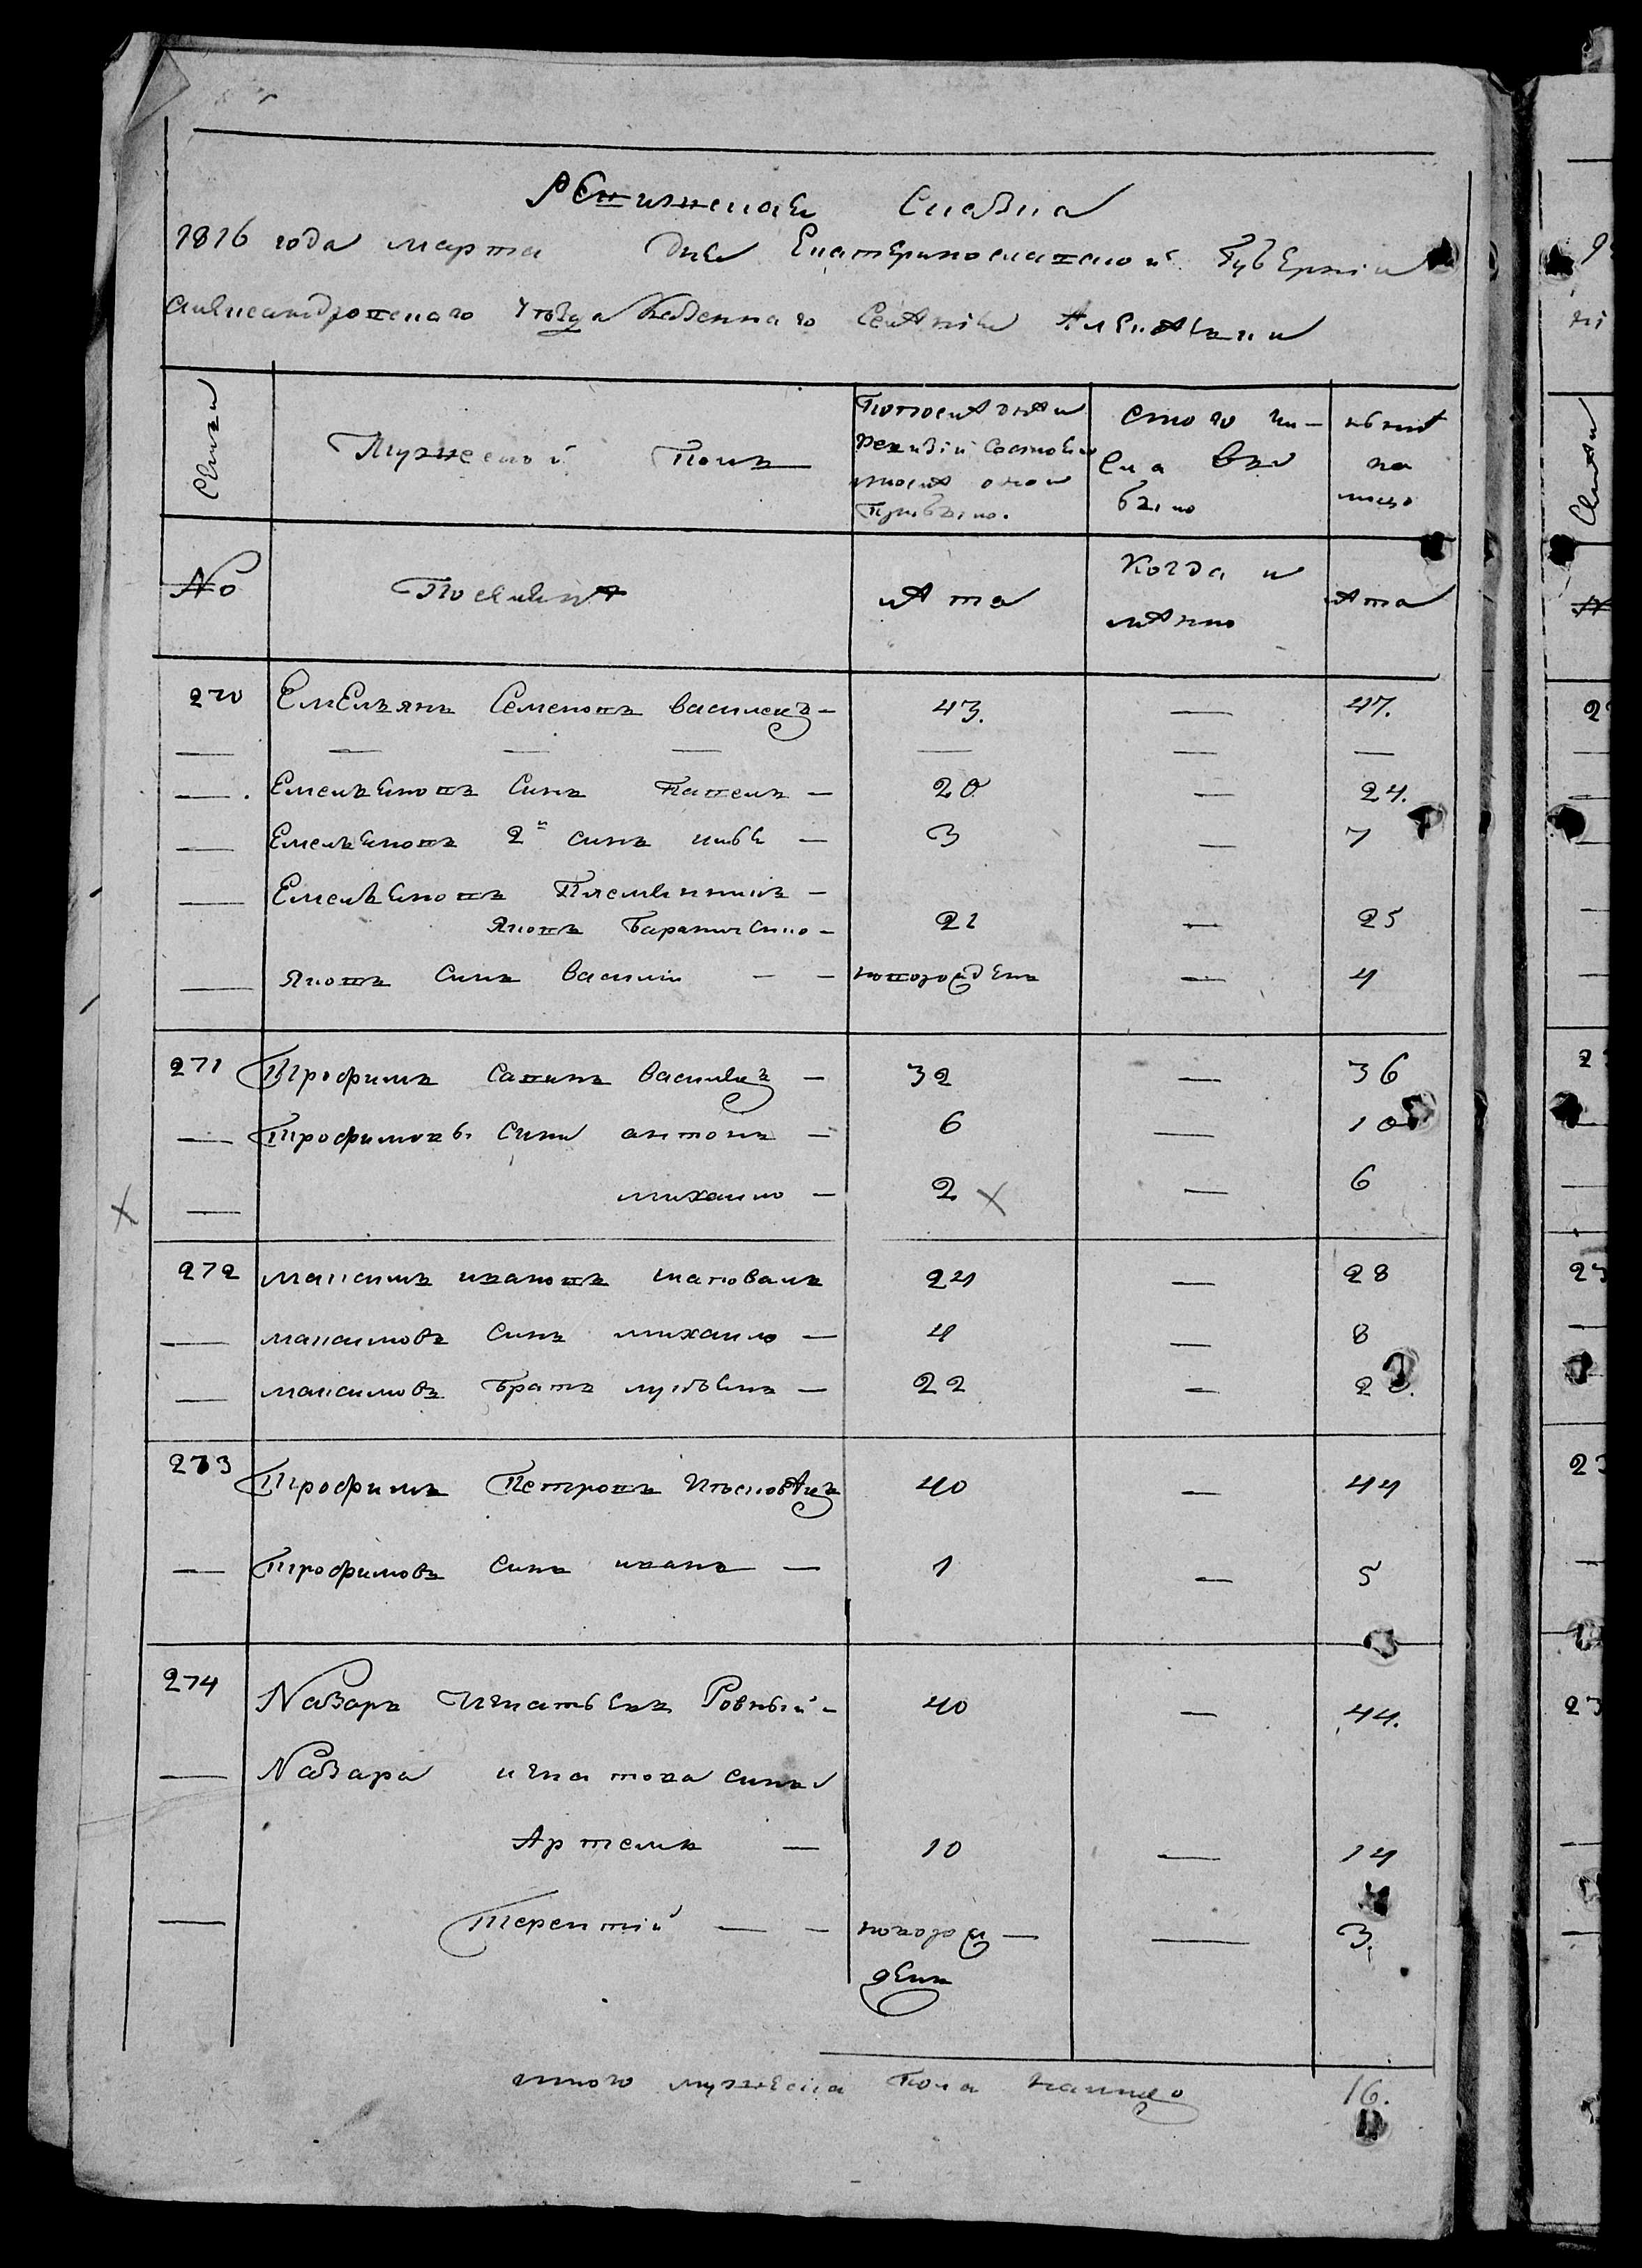 Ревижская Сказка
1816 года марта дня Екатеринославской Губернии
Александровскаго уезда Казеннаго селения
Семьи
Мужеской Полъ
По последней
ревизии состояло
и после оной
прибыло.
Изъ того чи-
сла вы
было
ныне
на
лицо
№
Поселяне
Лета
Когда и
именно
Лета
270 Емельянъ Семеновъ василенко – 43. — 47.
— — — — — — —
— . Емельяновъ Синъ Павелъ – 20 — 24.
— Емельяновъ 2й синъ – 3 — 7
— Емельяновъ Племянникъ –
Яковъ – 21 — 25
— Яковъ Синъ василий – – новорожденъ — 4
271 Трофимъ Савинъ василенко – 32 — 36
— Трофимовъ сини антонъ – 6 — 10
— михаило – 2 х — 6
х
272 максимъ ивановъ шаповалъ 24 — 28
— максимовъ синъ михаило – 4 — 8
— максимовъ братъ лукьянъ – 22 — 2
273 Трофимъ Петровъ 40 — 44
— Трофимовъ синъ иванъ – 1 — 5
274 Назаръ Игнатьевъ Ровный – 40 — 44.
— Назара игнатова сины
Артемъ – 10 — 14
— Терентий — – новорож – — 3.
денъ
итого мужеска пола налицо 16.